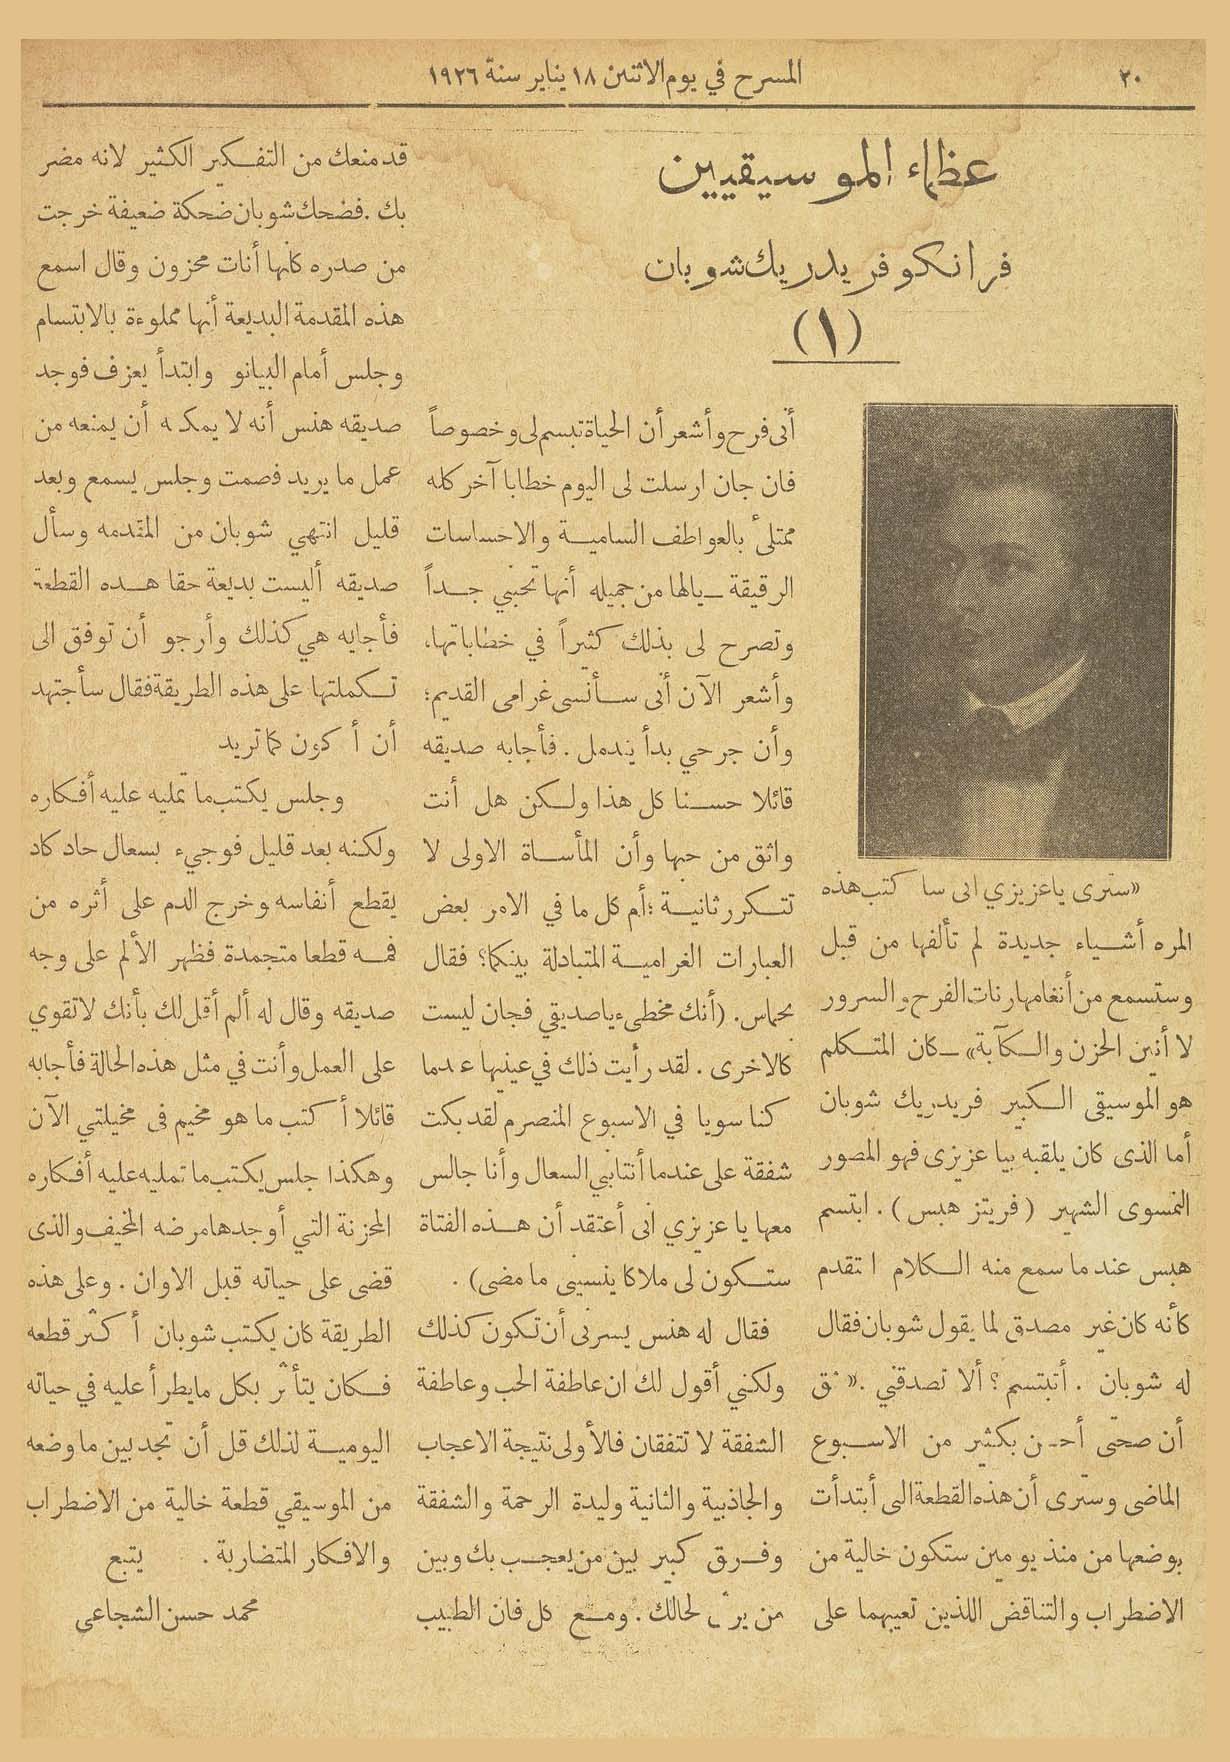 ٢٠
المسرح في يوم الاثنين ١٨ يناير سنة ١٩٢٦
عظاء الموسيقيين
فرانكو فريدريك شوبان
(١)
«سترى ياعزيزي انى سا كتب هذه
المره أشياء جديدة لم تألفها من قبل
وستسمع من أنغامها رنات الفرح والسرور
لا أنين الحزن والكآبة» ــ كان المتكلم
هو الموسيقى الكبير فريدريك شوبان
أما الذى كان يلقبه بيا عزيزى فهو المصور
النمسوى الشهير (فريتز هبس) . ابتسم
هبس عند ما سمع منه الكلام ا تقدم
كأنه كان غير مصدق لما يقول شوبان فقال
له شوبان . أتبتسم ؟ ألا تصدقني .« ثق
أن صحتى أحسن بكثير من الاسبوع
الماضى وسترى أن هذه القطعة التى أبتدأت
بوضعها من منذ يومين ستكون خالية من
الاضطراب والتناقض اللذين تعيبهما على
أنى فرح وأشعر أن الحياة تبسم لى وخصوصاً
فان جان ارسلت لى اليوم خطابا آخر كله
ممتلئ بالعواطف السامية والاحساسات
الرقيقة ــ يالها من جميله أنها تحبني جداً
وتصرح لى بذلك كثيراً في خطاباتها،
وأشعر الآن أنى سأنسى غرامى القديم؛
وأن جرحي بدأ يندمل . فأجابه صديقه
قائلا حسنا كل هذا ولكن هل أنت
واثق من حبها وأن المأساة الاولى لا
تتكرر ثانية ؛ أم كل ما في الامر بعض
العبارات الغرامية المتبادلة بينكما؟ فقال
بحماس. (أنك مخطىء ياصديقي فجان ليست
كالاخرى . لقد رأيت ذلك في عينيها عدما
كنا سويا في الاسبوع المنصرم لقد بكت
شفقة على عندما أنتابني السعال وأنا جالس
معها يا عزيزي انى أعتقد أن هذه الفتاة
ستكون لى ملاكا ينسيى ما مضى) .
فقال له هنس يسرنى أن تكون كذلك
ولكني أقول لك ان عاطفة الحب وعاطفة
الشفقة لا تتفقان فالأولى نتيجة الاعجاب
والجاذبية والثانية وليدة الرحمة والشفقة
وفرق كبير بين من يعجب بك وبين
من يرثى لحالك . ومع كل فان الطبيب
قد منعك من التفكير الكثير لانه مضر
بك . فضحك شوبان ضحكة ضعيفة خرجت
من صدره كأنها أنات محزون وقال اسمع
هذه المقدمة البديعة أنها مملوءة بالابتسام
وجلس أمام البيانو وابتدأ يعزف فوجد
صديقه هنس أنه لا يمكـه أن يمنعه من
عمل ما يريد فصمت وجلس يسمع وبعد
قليل انتهي شوبان من المقدمه وسأل
صديقه أليست بديعة حقا هـده القطعة
فأجابه هي كذلك وأرجو أن توفق الى
تكملتها على هذه الطريقة فقال سأجتهد
أن أ كون كما تريد
وجلس يكتب ما تمليه عليه أفكاره
ولكنه بعد قليل فوجيء بسعال حاد كاد
يقطع أنفاسه وخرج الدم على أثره من
فمه قطعا متجمدة فظهر الألم على وجه
صديقه وقال له ألم أقل لك بأنك لا تقوي
على العمل وأنت في مثل هذه الحالة فأجابه
قائلا أ كتب ما هو مخيم فى مخيلتي الآن
وهكذا جلس يكتب ما تمليه عليه أفكاره
المحزنة التي أوجدها مرضه المخيف والذى
قضى على حياته قبل الاوان . وعلى هذه
الطريقة كان يكتب شوبان أ كثر قطعه
فكان يتأثر بكل ما يطرأ عليه في حياته
اليومية لذلك قل أن تجد بين ما وضعه
من الموسيقي قطعة خالية من الاضطراب
والافكار المتضاربة . يتبع
محمد حسن الشجاعى